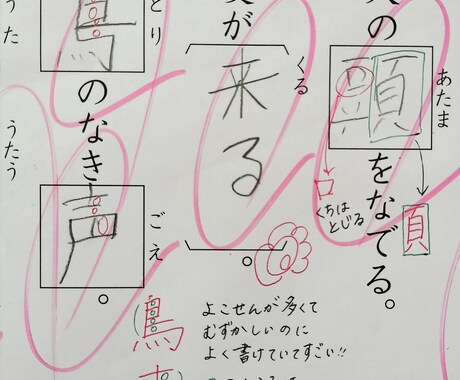 あたま
の頭をなでる。
頁
口
くちは
とじる
くる
が来る。
とり
ごえ
鳥のなき声。
うた
うたう
鳥
よこせんが多くて
むずかしいのに
よく書けていてすごい!!